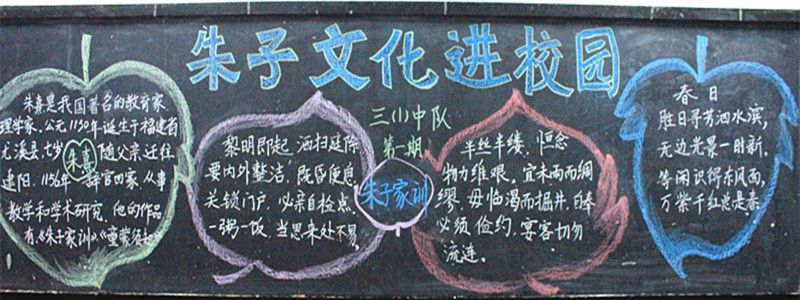 朱子文化进校园
三(1)中队
第一期
朱熹是我国著名的教育家
理学家。公元1130年诞生于福建省
尤溪县,七岁 随父亲迁往
建阳。1156年 辞官回家,从事
教学和学术研究,他的作品
有《朱子家训》《童蒙须知》
朱熹
黎明即起 洒扫庭除
要内外整洁,既昏便息
关锁门户,必亲自检点。
一粥一饭,当思来处不易,
朱子家训
半丝半缕,恒念
物力维艰。宜未雨而绸
缪,毋临渴而掘井,自奉
必须俭约,宴客切勿
流连。
春日
胜日寻芳泗水滨,
无边光景一时新,
等闲识得东风面,
万紫千红总是春